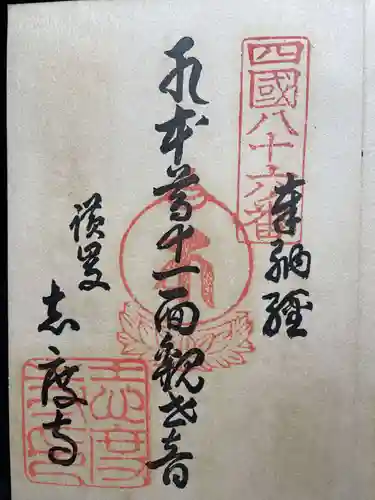 四國八十六番
奉納経
本尊十一面觀世音
讃岐
志度寺
志度寺